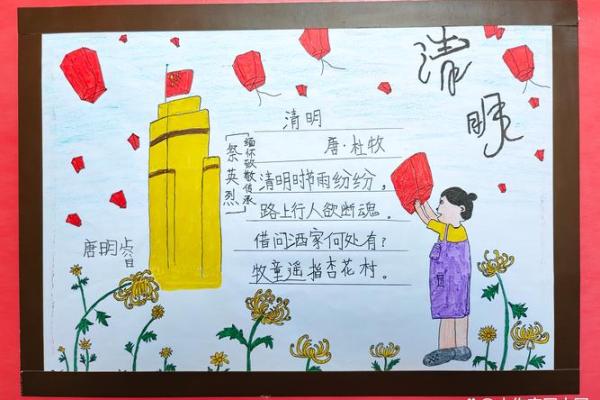 清明
清明
唐·杜牧
清明时节雨纷纷，
路上行人欲断魂。
借问酒家何处有？
牧童遥指杏花村。
缅怀致敬传承
祭英烈
唐明